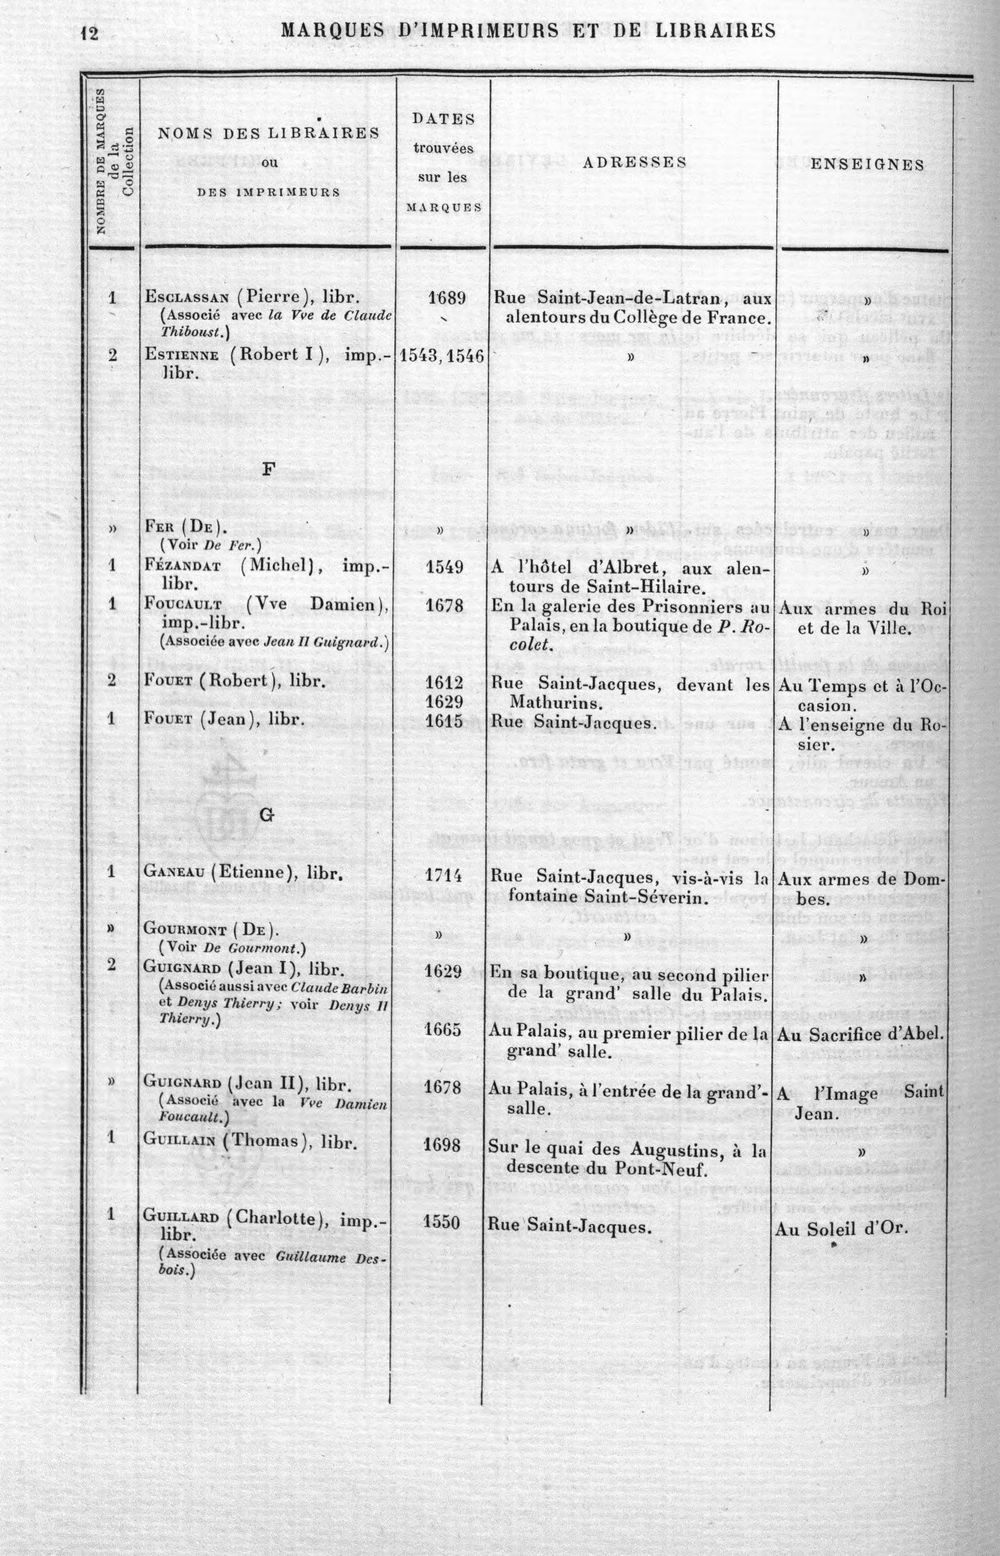 12
MARQUES D'IMPRIMEURS ET DE LIBRAIRES
NOMBRE DE MARQUES
de la
Collection
NOMS DES LIBRAIRES
ou
DES IMPRIMEURS
DATES
trouvées
sur les
MARQUES
ADRESSES
ENSEIGNES
1 ESCLASSAN (Pierre), libr. 1689 Rue Saint-Jean-de-Latran, aux »
(Associé avec la Vve de Claude alentours du Collège de France.
Thiboust.)
2 ESTIENNE (Robert I), imp.- 1543, 1546 » »
libr.
F
» FER (DE). » » »
(Voir De Fer.)
1 FÉZANDAT (Michel), imp.- 1549 A l'hôtel d'Albret, aux alen- »
libr. tours de Saint-Hilaire.
1 FOUCAULT (Vve Damien), 1678 En la galerie des Prisonniers au Aux armes du Roi
imp.-libr. Palais, en la boutique de P. Ro- et de la Ville.
(Associée avec Jean II Guignard.) colet.
2 FOUET (Robert), libr. 1612 Rue Saint-Jacques, devant les Au Temps et à l'Oc-
1629 Mathurins. casion.
1 FOUET (Jean), libr. 1615 Rue Saint-Jacques. A l'enseigne du Ro-
sier.
G
1 GANEAU (Etienne), libr. 1714 Rue Saint-Jacques, vis-à-vis la Aux armes de Dom-
fontaine Saint-Séverin. bes.
» GOURMONT (DE). » » »
(Voir De Gourmont.)
2 GUIGNARD (Jean I), libr. 1629 En sa boutique, au second pilier »
(Associé aussi avec Claude Barbin de la grand' salle du Palais.
et Denys Thierry; voir Denys II
Thierry.)
1665 Au Palais, au premier pilier de la Au Sacrifice d'Abel.
grand' salle.
» GUIGNARD (Jean II), libr. 1678 Au Palais, à l'entrée de la grand'- A l'Image Saint
(Associé avec la Vve Damien salle. Jean.
Foucault.)
1 GUILLAIN (Thomas), libr. 1698 Sur le quai des Augustins, à la »
descente du Pont-Neuf.
1 GUILLARD (Charlotte), imp.- 1550 Rue Saint-Jacques. Au Soleil d'Or.
libr.
(Associée avec Guillaume Des-
bois.)